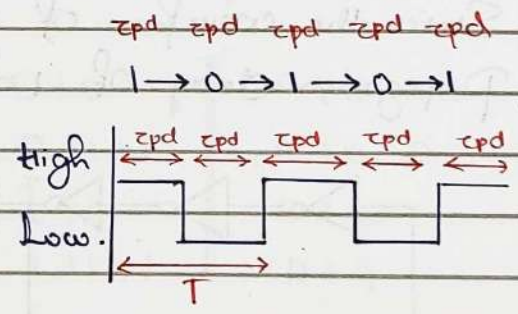 τpd τpd τpd τpd τpd
1 → 0 → 1 → 0 → 1
τpd τpd τpd τpd τpd
High
Low.
T